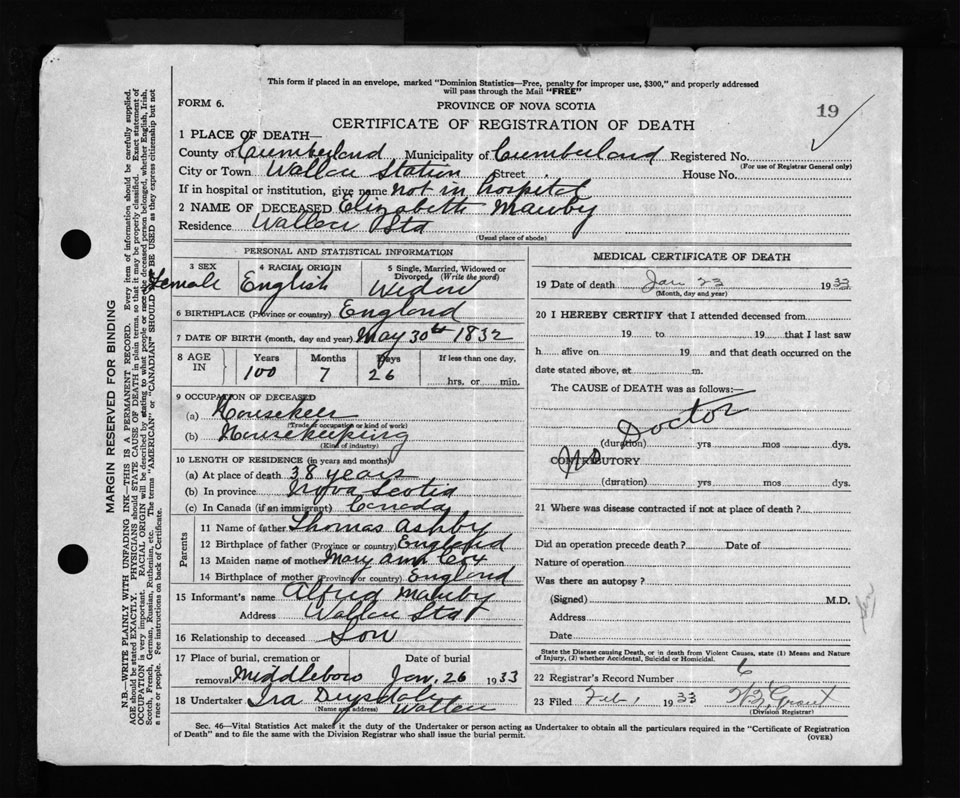 This form if placed in an envelope, marked "Dominion Statistics—Free, penalty for improper use, $300," and properly addressed
will pass through the Mail "FREE"
FORM 6.
PROVINCE OF NOVA SCOTIA
19
CERTIFICATE OF REGISTRATION OF DEATH
1 PLACE OF DEATH—
County of Cumberland Municipality of Cumberland Registered No.
(For use of Registrar General only)
City or Town Wallace Station Street House No.
If in hospital or institution, give name not in hospital
2 NAME OF DECEASED Elizabeth Mawby
Residence Wallace Sta
(Usual place of abode)
MARGIN RESERVED FOR BINDING
N.B.—WRITE PLAINLY WITH UNFADING INK—THIS IS A PERMANENT RECORD. Every item of information should be carefully supplied.
AGE should be stated EXACTLY. PHYSICIANS should STATE CAUSE OF DEATH in plain terms, so that it may be properly classified. Exact statement of
OCCUPATION is very important. RACIAL ORIGIN will be described by stating to what people or race the deceased person belonged, whether English, Irish,
Scotch, French, German, Russian, Ruthenian, etc. The terms "AMERICAN" or "CANADIAN" SHOULD NOT BE USED as they express citizenship but not
a race or people. See instructions on back of Certificate.
PERSONAL AND STATISTICAL INFORMATION
3 SEX
Female
4 RACIAL ORIGIN
English
5 Single, Married, Widowed or
Divorced (Write the word)
Widow
6 BIRTHPLACE (Province or country) England
7 DATE OF BIRTH (month, day and year) May 30th 1832
8 AGE IN
Years Months Days If less than one day,
100 7 26 hrs. or min.
9 OCCUPATION OF DECEASED
(a)
(Trade or occupation or kind of work)
(b) Housekeeping
(Kind of industry)
10 LENGTH OF RESIDENCE (in years and months)
(a) At place of death 38 years
(b) In province Nova Scotia
(c) In Canada (if an immigrant) Canada
Parents
11 Name of father Thomas Ashby
12 Birthplace of father (Province or country) England
13 Maiden name of mother Mary Ann Cox
14 Birthplace of mother (Province or country) England
15 Informant's name Alfred Mawby
Address Wallace Stat
16 Relationship to deceased Son
17 Place of burial, cremation or Date of burial
removal Middleboro Jan, 26 1933
18 Undertaker Ira Drysdale
(Name and address) Wallace
MEDICAL CERTIFICATE OF DEATH
19 Date of death Jan 23 1933
(Month, day and year)
20 I HEREBY CERTIFY that I attended deceased from
19 to 19 that I last saw
h alive on 19 and that death occurred on the
date stated above, at m.
The CAUSE of DEATH was as follows:—
No Doctor
(duration) yrs mos dys.
CONTRIBUTORY
(duration) yrs mos dys.
21 Where was disease contracted if not at place of death?
Did an operation precede death? Date of
Nature of operation
Was there an autopsy?
(Signed) M.D.
Address
Date
State the Disease causing Death, or in death from Violent Causes, state (1) Means and Nature
of Injury, (2) whether Accidental, Suicidal or Homicidal.
22 Registrar's Record Number 6
23 Filed Feb, 1 1933 Grant
(Division Registrar)
Sec. 46—Vital Statistics Act makes it the duty of the Undertaker or person acting as Undertaker to obtain all the particulars required in the "Certificate of Registration
of Death" and to file the same with the Division Registrar who shall issue the burial permit.
(OVER)